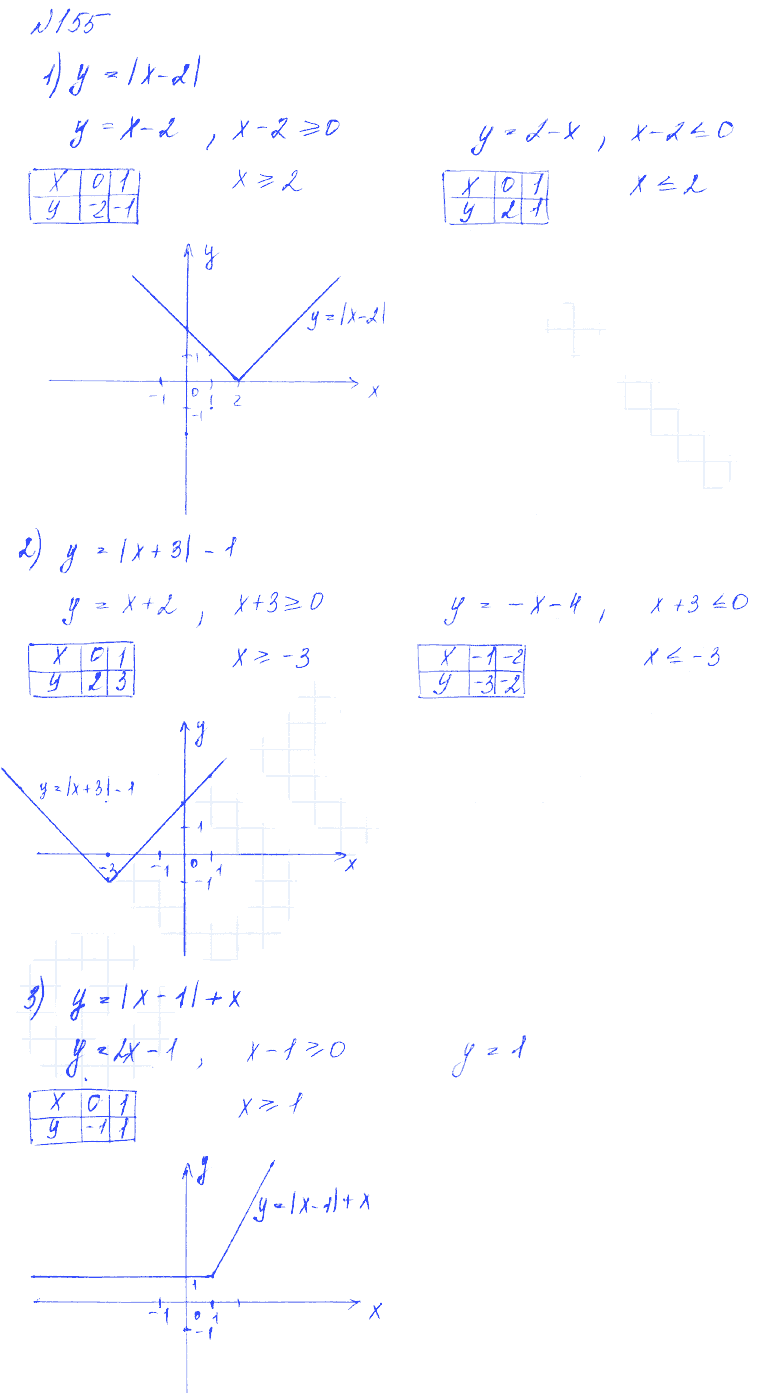 №155
1) y = |x-2|
y = x-2 , x-2 ≥ 0 y = 2-x , x-2 ≤ 0
x 0 1 x ≥ 2 x 0 1 x ≤ 2
y -2 -1 y 2 1
y
y = |x-2|
1
-1 0 1 2 x
-1
2) y = |x+3| - 1
y = x+2 , x+3 ≥ 0 y = -x-4 , x+3 ≤ 0
x 0 1 x ≥ -3 x -1 -2 x ≤ -3
y 2 3 y -3 -2
y
y = |x+3| - 1
1
-3 -1 0 1 x
-1
3) y = |x-1| + x
y = 2x-1 , x-1 ≥ 0 y = 1
x 0 1 x ≥ 1
y -1 1
y
y = |x-1| + x
1
-1 0 1 x
-1